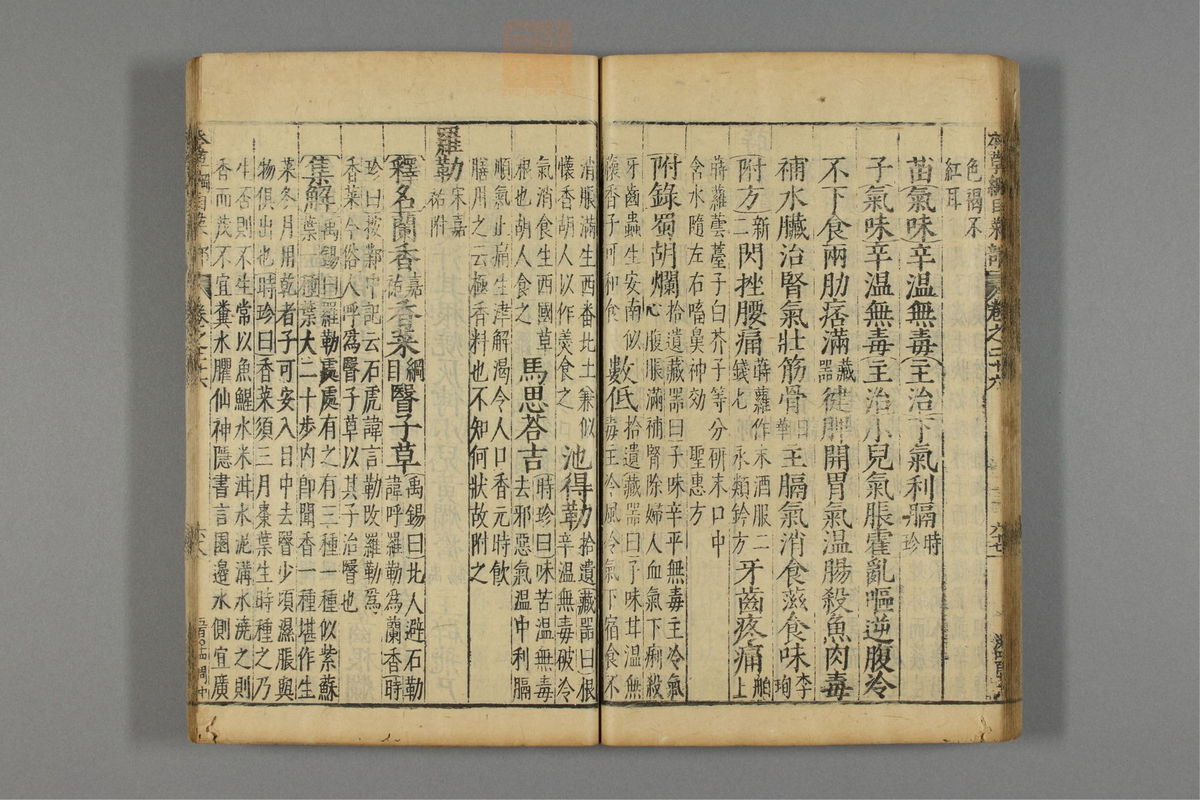 色褐不
紅耳
苗氣味辛溫無毒主治下氣利膈時珍
子氣味辛溫無毒主治小兒氣脹霍亂嘔逆腹冷
不下食兩肋痞滿藏器健脾開胃氣溫腸殺魚肉毒
補水臟治腎氣壯筋骨日華主膈氣消食滋食味李珣
附方新二閃挫腰痛蒔蘿作末酒服二錢匕永類鈐方牙齒疼痛舶上
蒔蘿蕓薹子白芥子等分研末口中
含水隨左右㗜鼻神効 聖惠方
附錄蜀胡爛拾遺藏器曰子味辛平無毒主冷氣心腹脹滿補腎除婦人血氣下痢殺
牙齒蟲生安南似
懷香子可和食 數低拾遺藏器曰子味甘溫無毒主冷風冷氣下宿食不
消脹滿生西番北土兼似
懷香胡人以作羹食之 池得勒拾遺藏器曰根辛溫無毒破冷
氣消食生西國草
根也胡人食之 馬思荅吉時珍曰味苦溫無毒去邪惡氣溫中利膈
順氣止痛生津解渴令人口香元時飲
膳用之云極香料也不知何狀故附之
羅勒宋嘉祐附
釋名蘭香嘉祐香菜綱目瞖子草禹錫曰北人避石勒諱呼羅勒為蘭香時
珍曰按鄴中記云石虎諱言勒改羅勒為
香菜今俗人呼為瞖子草以其子治瞖也
集解禹錫曰羅勒處處有之有三種一種似紫蘇葉一種葉大二十步內即聞香一種堪作生
菜冬月用乾者子可安入目中去瞖少頃濕脹與
物俱出也時珍曰香菜須三月棗葉生時種之乃
生否則不生常以魚腥水米泔水泥溝水澆之則
香而茂不宜糞水臞仙神隱書言園邊水側宜廣